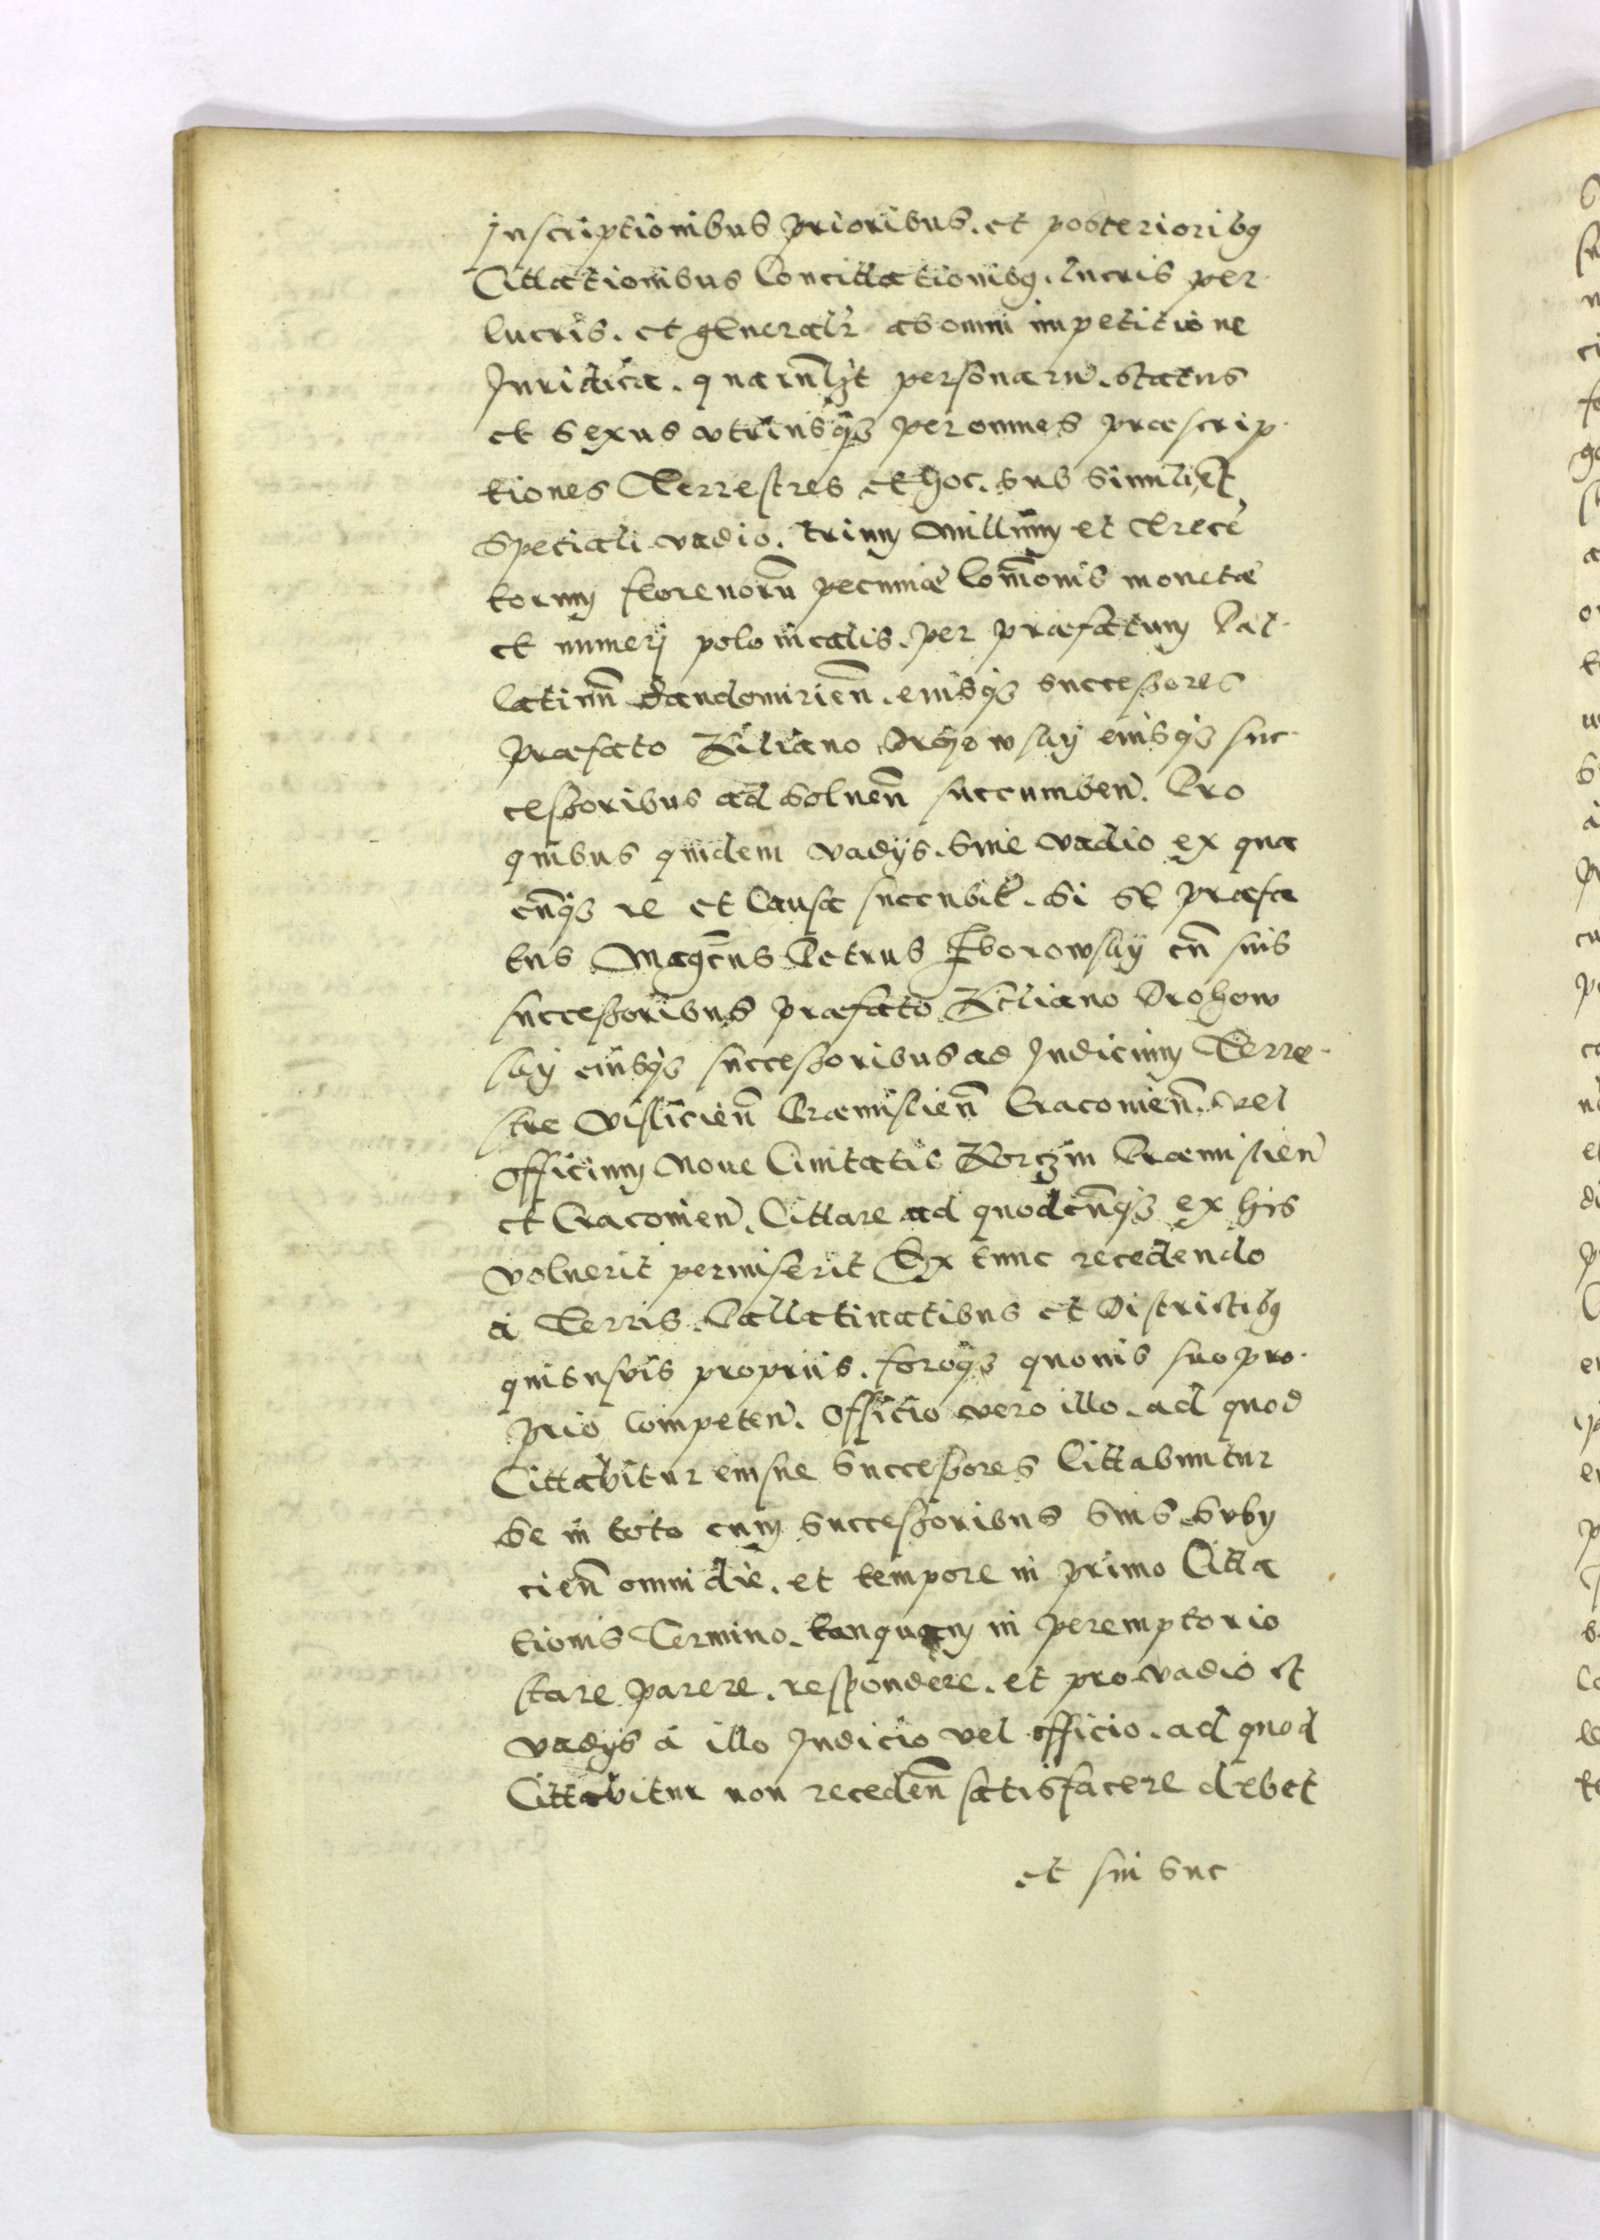 Inscriptionibus prioribus. et posteriorib9
Cittationibus Concittationib9. lucris per
lucris. et generalr ab omni impetitione
Juridica. quarulibet personaru. status
et sexus vtriusq3 per omnes præscrip
tiones Terrestres et hoc. sub simili et
Speciali vadio. trium Millium et trece
torum florenoru pecuniæ Comonis monetæ
et numerj polonicalis. per præfatum Pal
latinu Sandomirien. eiusq3 successores
præfato Kiliano Droyowsky eiusq3 suc
cessoribus ad soluen succumben. Pro
quibus quidem vadijs. siue vadio ex qua
cuq3 re et Causa succubit. Si se præfa
tus Magcus Petrus Zborowsky cu suis
successoribus præfato Kiliano Drohow
sky eiusq3 successoribus ad Judicium Terre
stre Vislicien Præmislien Cracouien. vel
officium Noue Ciuitatis Korczin Præmislien
et Cracouien. Cittare ad quodcuq3 ex his
voluerit permiserit Ex tunc recedendo
à Terris. Pallatinatibus et Districtib9
quibusuis proprijs. foroq3 quouis suo pro
prio competen. Officio vero illo. ad quod
Cittabitur eiusue Successores Cittabuntur
se in toto cum Successoribus Suis Subij
cien omni die. et tempore in primo Citta
tionis Termino. tanquam in peremptorio
stare parere. respondere. et pro vadio et
vadijs à illo Judicio vel officio. ad quod
Cittabitur non receden satisfacere debet
et sui suc